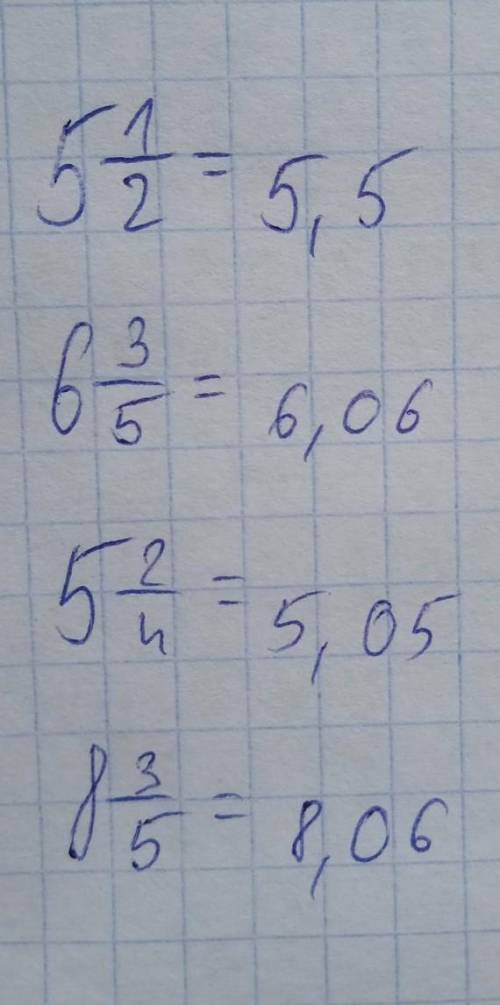 5 1/2 = 5,5
6 3/5 = 6,06
5 2/4 = 5,05
8 3/5 = 8,06